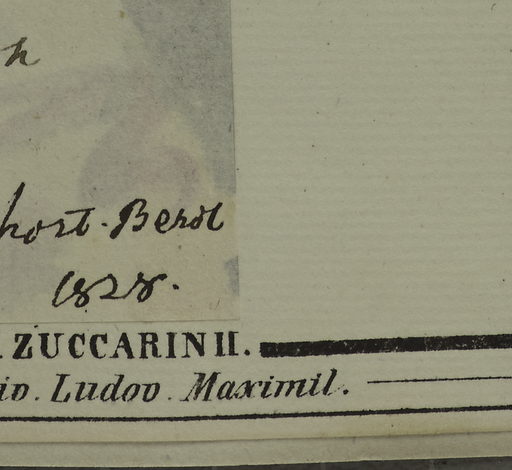 h
hort. Berol
1828.
. ZUCCARINII.
iv. Ludov. Maximil.